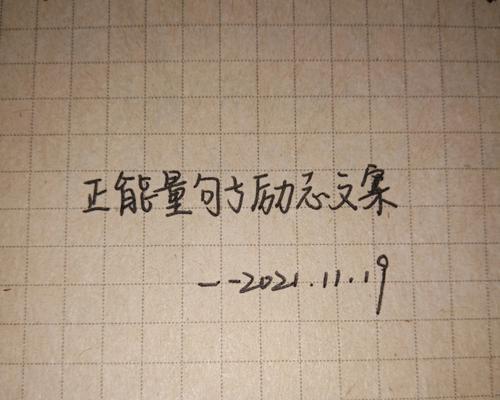 正能量句与励志文案
--2021.11.19